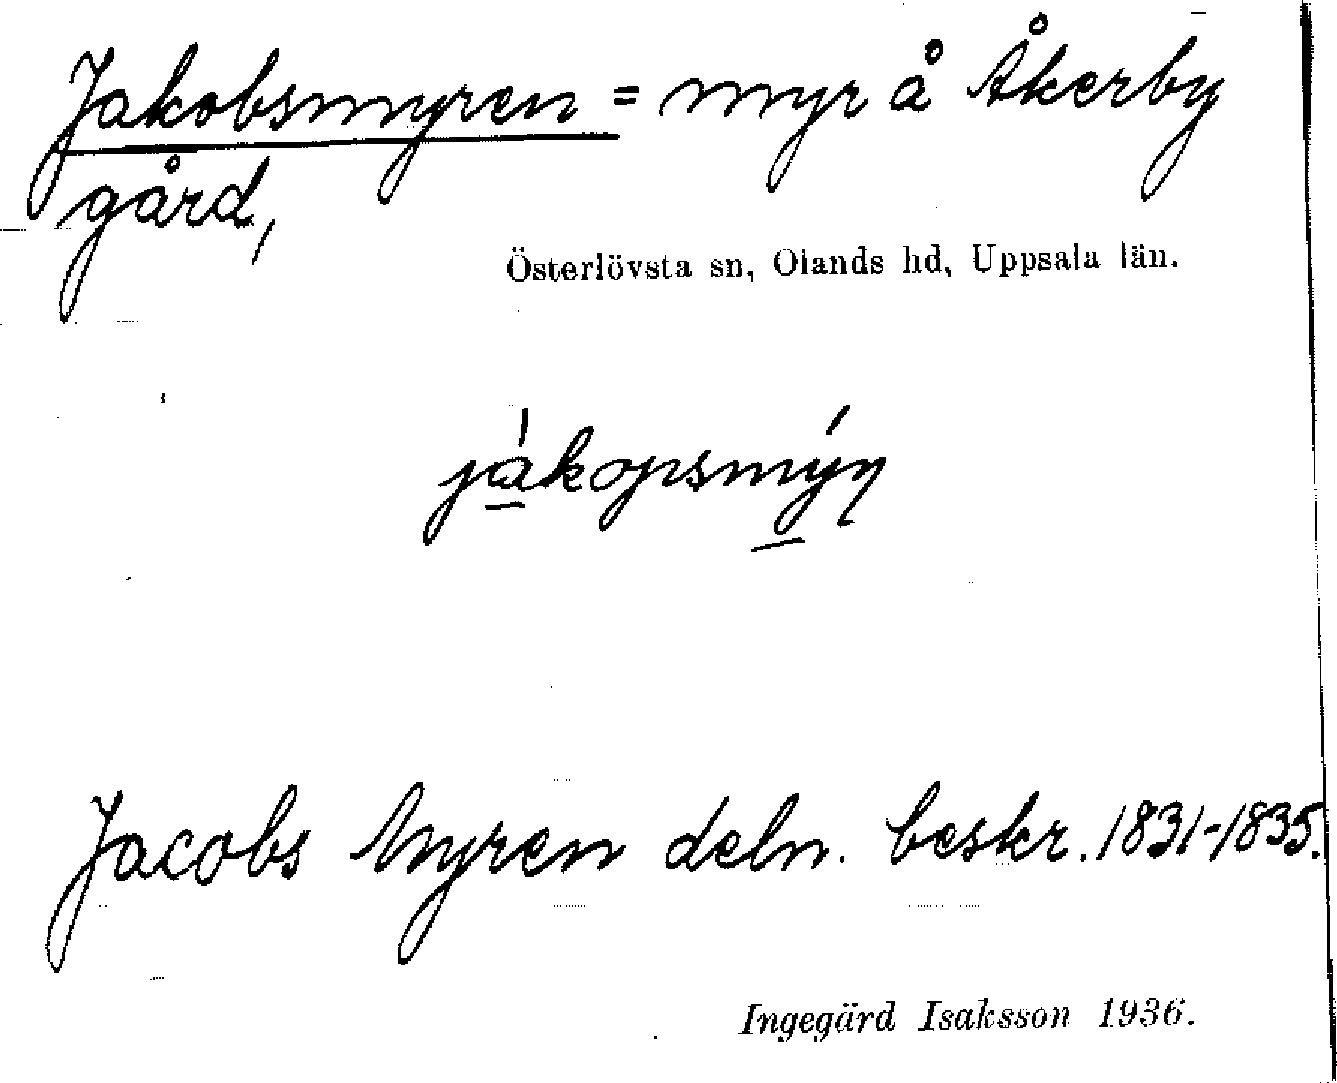 Jakobsmyren = myr å Åkerby
gård,
Österlövsta sn, Olands hd, Uppsala län.
jákopsmýɳ
Jacobs Myren deln. beskr. 1831-1835.
Ingegärd Isaksson 1936.